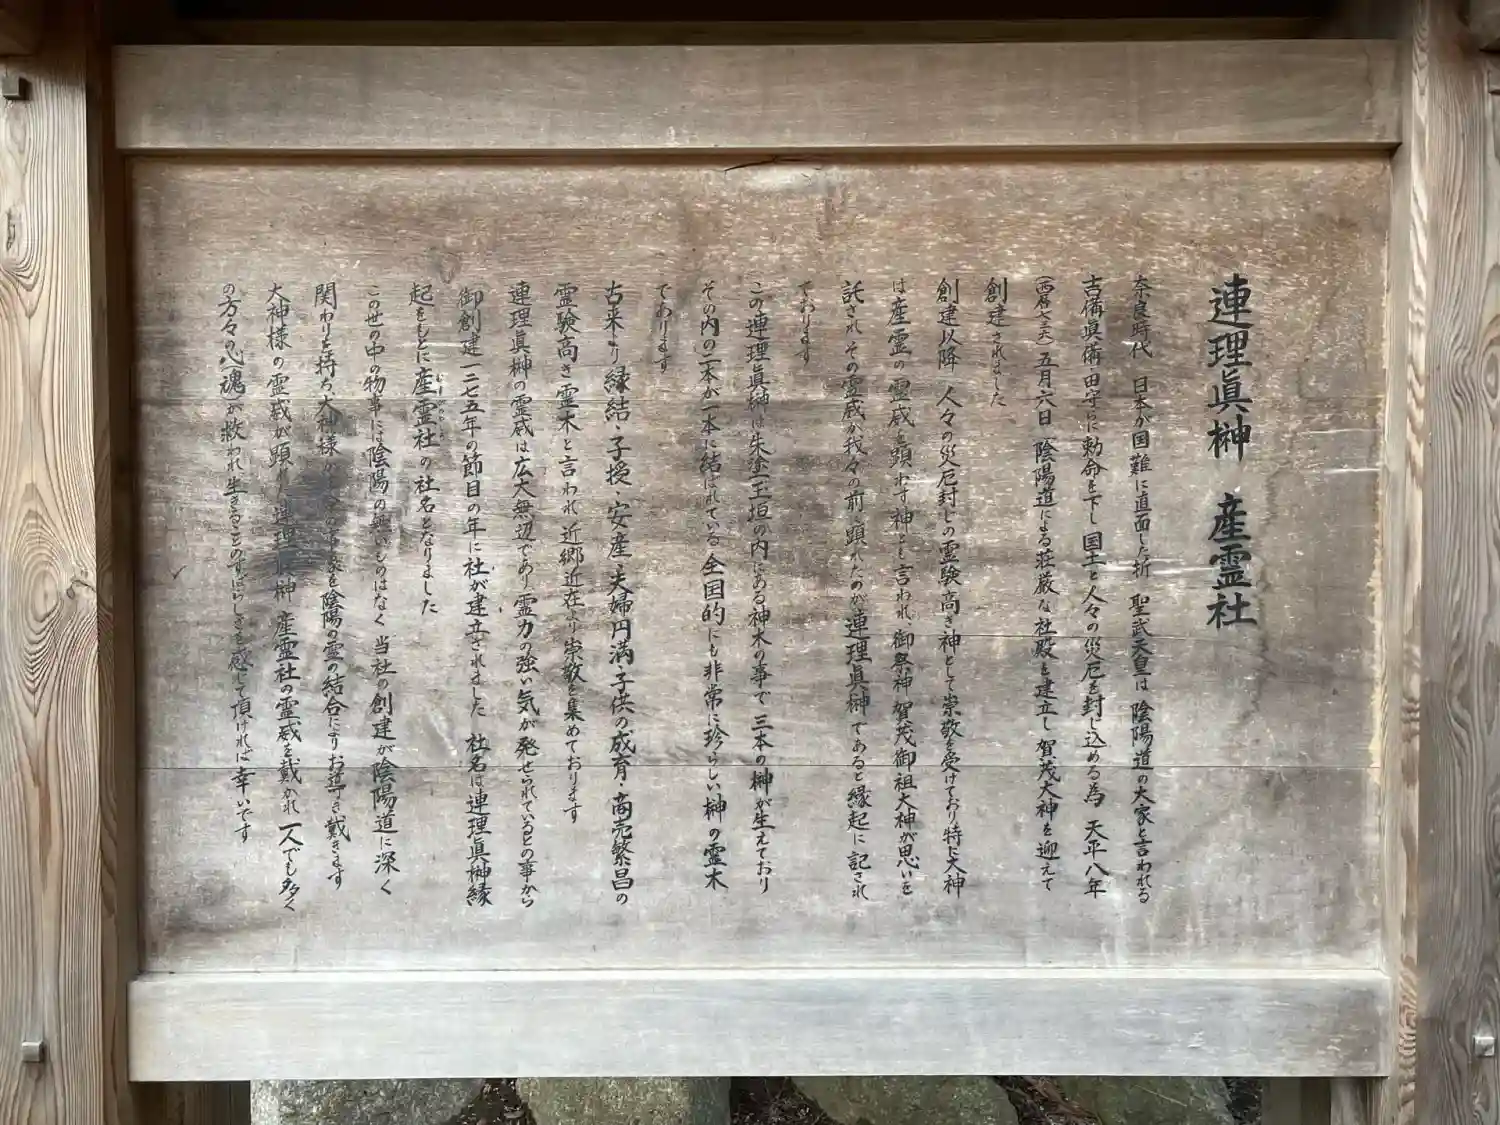 連理眞榊 産霊社
奈良時代 日本が国難に直面した折 聖武天皇は陰陽道の大家と言われる
吉備眞備・田守に勅命を下し国土と人々の災厄を封じ込める為 天平八年
(西暦七三六)五月六日 陰陽道による荘厳な社殿を建立し賀茂大神を迎えて
創建されました
創建以降 人々の災厄封じの霊験高き神として崇敬を受けており特に大神
は産霊の霊威を顕わす神とも言われ、御祭神賀茂御祖大神が思いを
託され、その霊威が我々の前へ顕れたのが連理眞榊であると縁起に記され
ております
この連理眞榊は朱塗玉垣の内にある神木の事で 三本の榊が生えており
その内の二本が一本に結ばれている全国的にも非常に珍らしい榊の霊木
であります
古来より縁結・子授・安産・夫婦円満・子供の成育・商売繁昌の
霊験高き霊木と言われ 近郷近在より崇敬を集めております
連理眞榊の霊威は広大無辺であり霊力の強い気が発せられているとの事から
御創建一二七五年の節目の年に社が建立されました 社名は連理眞榊縁
起をもとに産霊社の社名となりました
この世の中の物事には陰陽の無いものはなく 当社の創建が陰陽道に深く
関わりを持ち大神様が の を陰陽の霊の結合によりお導き戴きます
大神様の霊威が顕れた連理眞榊 産霊社の霊威を戴かれ 一人でも多く
の方々の心魂が救われ生きることのすばらしさを感じて頂ければ幸いです